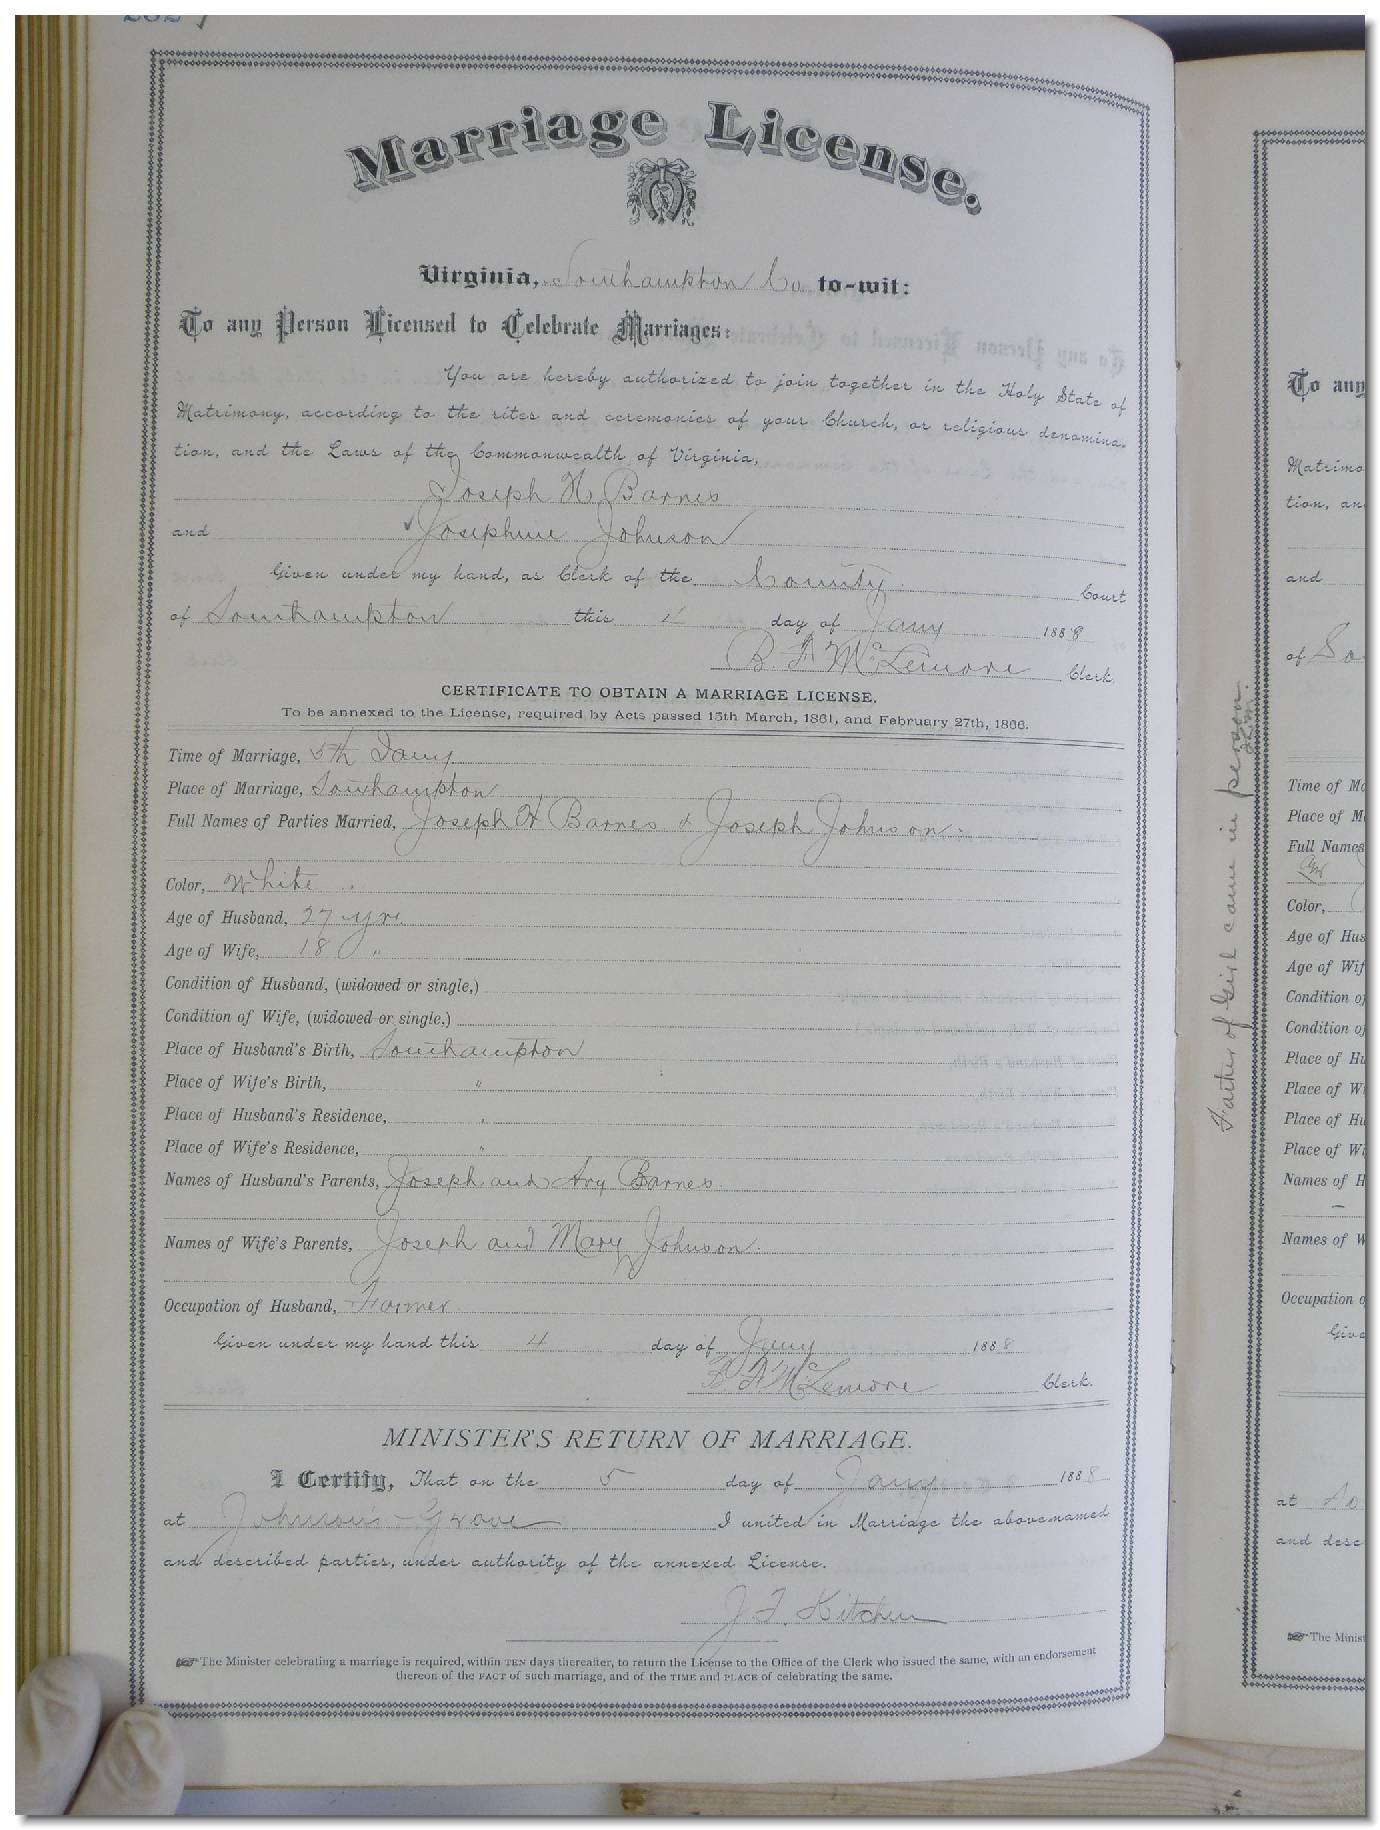 Marriage License.
Virginia, Southampton Co to-wit:
To any Person Licensed to Celebrate Marriages:
You are hereby authorized to join together in the Holy State of
Matrimony, according to the rites and ceremonies of your Church, or religious denomina-
tion, and the Laws of the Commonwealth of Virginia,
Joseph H Barnes
and Josephine Johnson
Given under my hand, as Clerk of the County Court
of Southampton this 4 day of Jany 1888
B. F. McLemore Clerk
CERTIFICATE TO OBTAIN A MARRIAGE LICENSE.
To be annexed to the License, required by Acts passed 15th March, 1861, and February 27th, 1866.
Time of Marriage, 5th Jany
Place of Marriage, Southampton
Full Names of Parties Married, Joseph H Barnes & Joseph Johnson
Color, White
Age of Husband, 27 yrs
Age of Wife, 18 "
Condition of Husband, (widowed or single,)
Condition of Wife, (widowed or single,)
Place of Husband's Birth, Southampton
Place of Wife's Birth, "
Place of Husband's Residence, "
Place of Wife's Residence, "
Names of Husband's Parents, Joseph and Ary Barnes.
Names of Wife's Parents, Joseph and Mary Johnson.
Occupation of Husband, Farmer
Given under my hand this 4 day of Jany 1888
McLemore Clerk.
MINISTER'S RETURN OF MARRIAGE.
I Certify, That on the 5 day of Jany 1888
at Johnson's Grove I united in Marriage the above named
and described parties, under authority of the annexed License.
J F. Kitchen
The Minister celebrating a marriage is required, within TEN days thereafter, to return the License to the Office of the Clerk who issued the same, with an endorsement
thereon of the FACT of such marriage, and of the TIME and PLACE of celebrating the same.
Father of Girl came in person.
To any
Matrimo
tion, an
and
of So
Time of Ma
Place of M
Full Names
Color,
Age of Hus
Age of Wif
Condition of
Condition of
Place of Hu
Place of Wi
Place of Hu
Place of Wi
Names of H
Names of W
Occupation o
Give
at So
and desc
The Minist